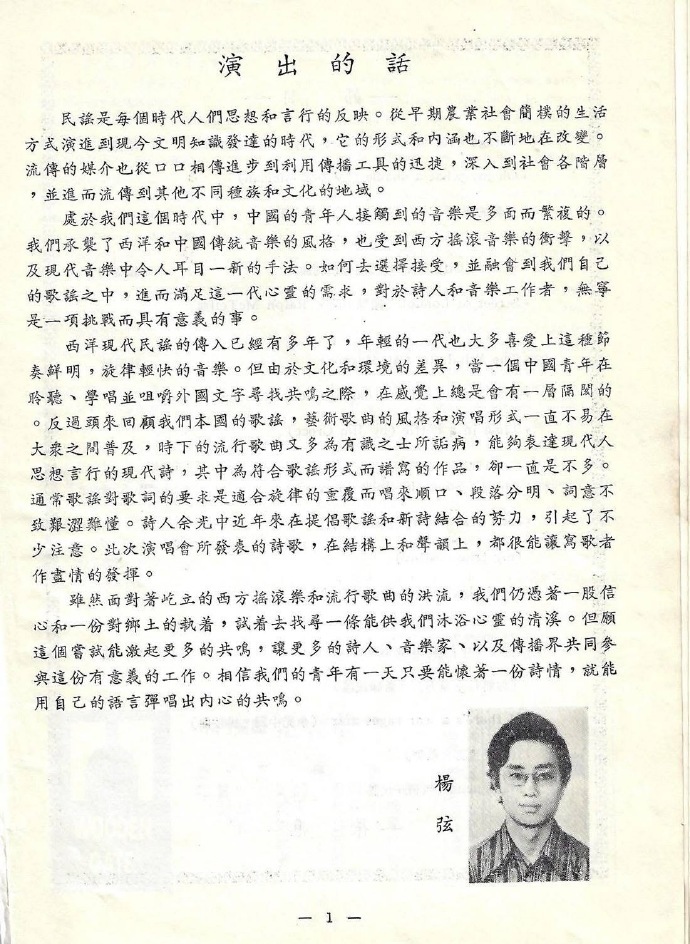 演出的話
民謠是每個時代人們思想和言行的反映。從早期農業社會簡樸的生活
方式演進到現今文明知識發達的時代，它的形式和內涵也不斷地在改變。
流傳的媒介也從口口相傳進步到利用傳播工具的迅捷，深入到社會各階層
，並進而流傳到其他不同種族和文化的地域。
處於我們這個時代中，中國的青年人接觸到的音樂是多面而繁複的。
我們承襲了西洋和中國傳統音樂的風格，也受到西方搖滾音樂的衝擊，以
及現代音樂中令人耳目一新的手法。如何去選擇接受，並融會到我們自己
的歌謠之中，進而滿足這一代心靈的需求，對於詩人和音樂工作者，無寧
是一項挑戰而具有意義的事。
西洋現代民謠的傳入已經有多年了，年輕的一代也大多喜愛上這種節
奏鮮明，旋律輕快的音樂。但由於文化和環境的差異，當一個中國青年在
聆聽、學唱並咀嚼外國文字尋找共鳴之際，在感覺上總是會有一層隔閡的
。反過頭來回顧我們本國的歌謠，藝術歌曲的風格和演唱形式一直不易在
大衆之間普及，時下的流行歌曲又多為有識之士所詬病，能夠表達現代人
思想言行的現代詩，其中為符合歌謠形式而譜寫的作品，卻一直是不多。
通常歌謠對歌詞的要求是適合旋律的重覆而唱來順口、段落分明、詞意不
致艱澀難懂。詩人余光中近年來在提倡歌謠和新詩結合的努力，引起了不
少注意。此次演唱會所發表的詩歌，在結構上和聲韻上，都很能讓寫歌者
作盡情的發揮。
雖然面對著屹立的西方搖滾樂和流行歌曲的洪流，我們仍憑著一股信
心和一份對鄉土的執着，試着去找尋一條能供我們沐浴心靈的清溪。但願
這個嘗試能激起更多的共鳴，讓更多的詩人、音樂家、以及傳播界共同參
與這份有意義的工作。相信我們的青年有一天只要能懷著一份詩情，就能
用自己的語言彈唱出內心的共鳴。
楊弦
— 1 —